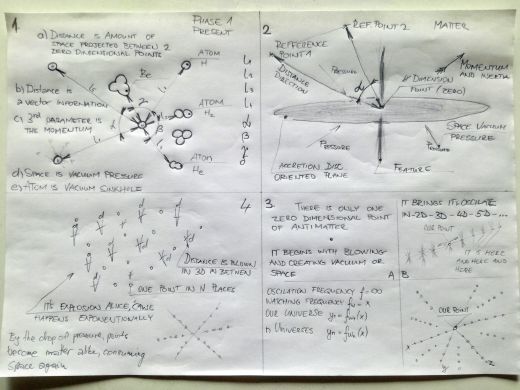 1
PHASE 1
PRESENT
a) DISTANCE IS AMOUNT
OF SPACE PROJECTED BETWEEN 2
ZERO DIMENSIONAL POINTS
ATOM
H
Be
b) DISTANCE IS
A VECTOR INFORMATION
ATOM
H2
c) 3rd PARAMETER IS
THE MOMENTUM
ATOM
He
d) SPACE IS VACUUM PRESSURE
e) ATOM IS VACUUM SINKHOLE
L1
L2
L3
α
β
2
REF. POINT 2
MATTER
REFFERENCE
POINT 1
DISTANCE
DIRECTION
PRESSURE
α
MOMENTUM
AND INERTIA
DIMENSION
POINT (ZERO)
SPACE VACUUM
PRESSURE
PRESSURE
PRESSURE
ACCRETION DISC
ORIENTED PLANE
FEATURE
4
d
DISTANCE IS BLOWN
IN 3D IN BETWEEN
ONE POINT IN N PLACES
IT'S EXPLOSION ALICE, CAUSE
HAPPENS EXPONENTIALLY
By the drop of pressure, points
become matter alike, consuming
Space again
3
THERE IS ONLY ONE
ZERO DIMENSIONAL POINT
OF ANTIMATTER
IT BEGINS WITH BLOWING
AND CREATING VACUUM OR
SPACE
A
OSCILATION FREQUENCY f=∞
MATCHING FREQUENCY
OUR UNIVERSE
n UNIVERSES
IT BRINGS IT'S OSCILATE
IN -2D -3D -4D -5D -...
OUR POINT
IT IS HERE
AND HERE AND
HERE
B
OUR POINT